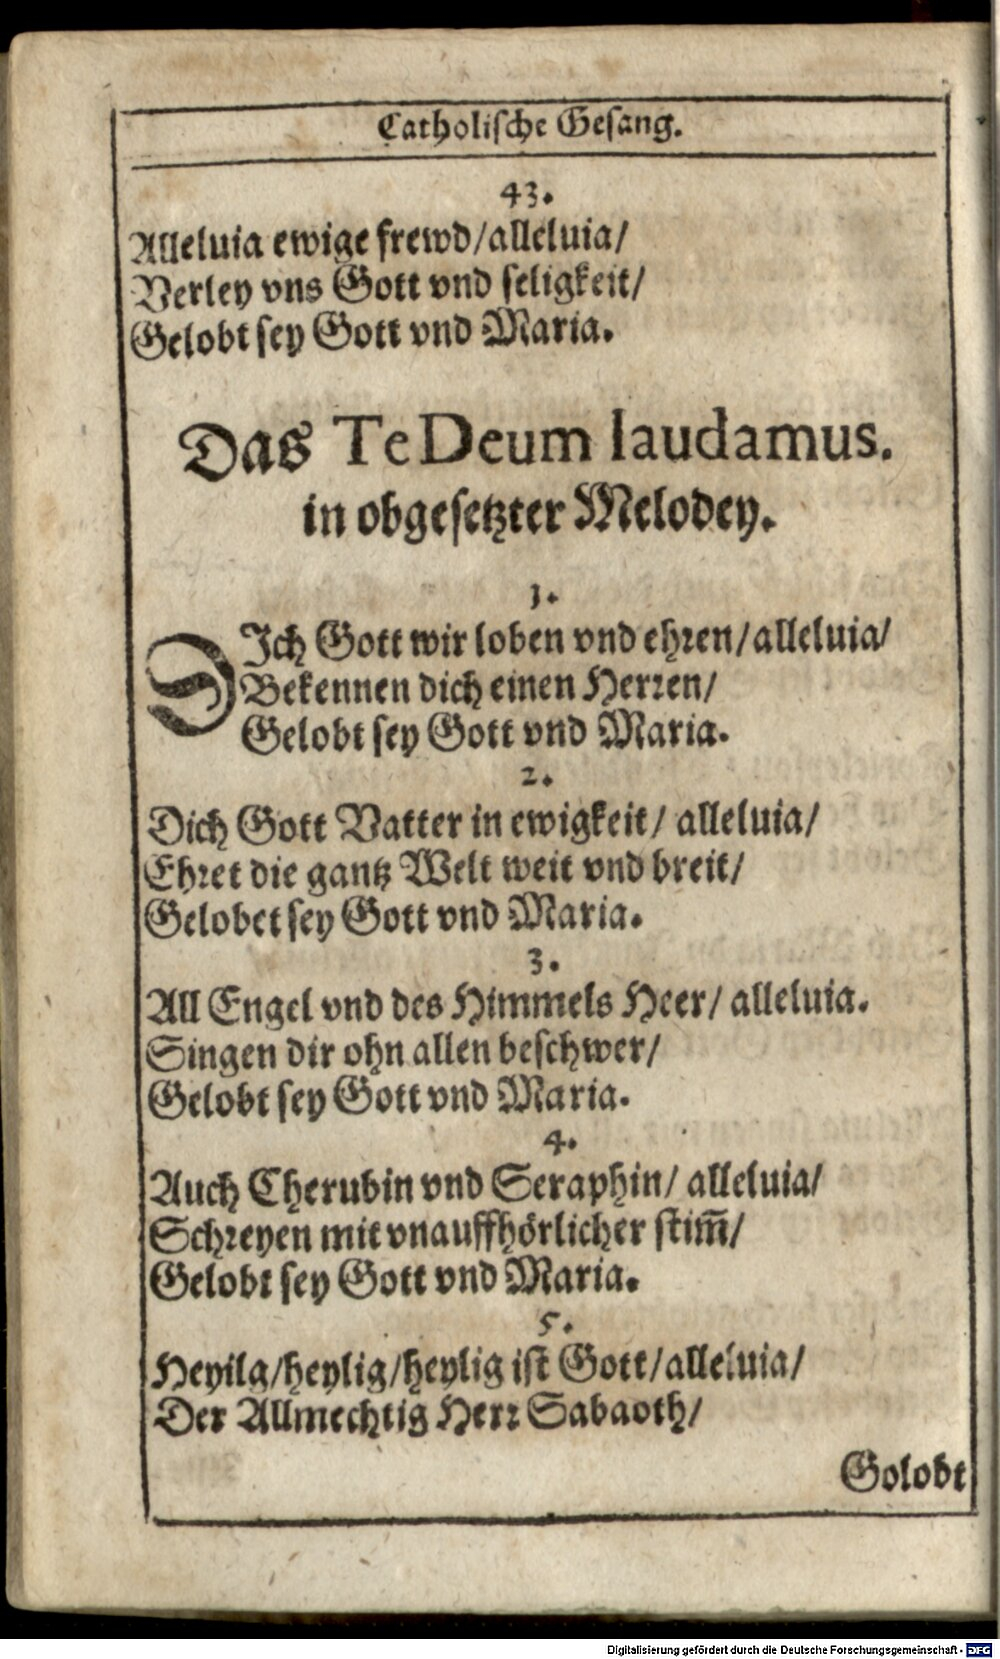 Catholische Gesang.
43.
Alleluia ewige frewd/alleluia/
Verley vns Gott vnd seligkeit/
Gelobt sey Gott vnd Maria.
Das Te Deum laudamus.
in obgesetzter Melodey.
1.
DIch Gott wir loben vnd ehren/alleluia/
Bekennen dich einen Herren/
Gelobt sey Gott vnd Maria.
2.
Dich Gott Vatter in ewigkeit/ alleluia/
Ehret die gantz Welt weit vnd breit/
Gelobet sey Gott vnd Maria.
3.
All Engel vnd des Himmels Heer/ alleluia.
Singen dir ohn allen beschwer/
Gelobt sey Gott vnd Maria.
4.
Auch Cherubin vnd Seraphin/ alleluia/
Schreyen mit vnauffhörlicher stim̃/
Gelobt sey Gott vnd Maria.
5.
Heyilg/heylig/heylig ist Gott/alleluia/
Der Allmechtig Herr Sabaoth/
Golobt
Digitalisierung gefördert durch die Deutsche Forschungsgemeinschaft - DFG